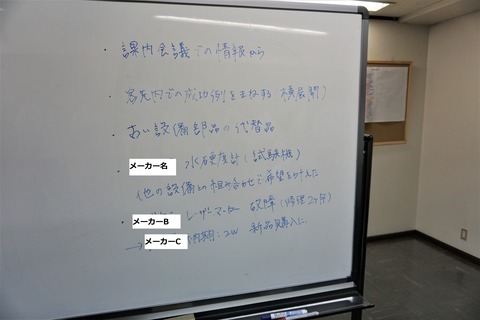 ・課内会議での情報から
・客先内での成功例を まねする 横展開)
・古い設備部品の代替品
メーカー名 水硬度計(試験機)
他の設備との組み合わせで希望を叶えた
・メーカーB レーザーマーカー 故障(修理2ヶ月)
→ メーカーC 納期:2W 新品購入に